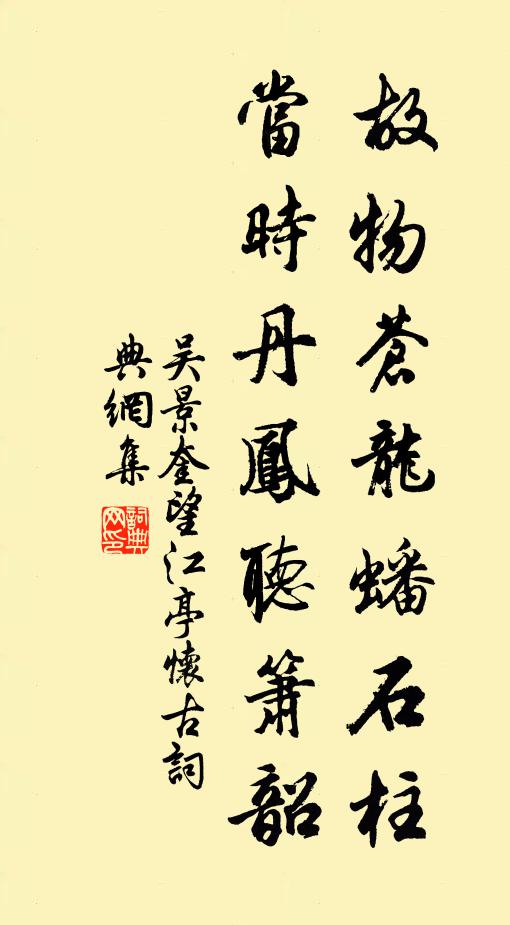 故物蒼龍蟠石柱
當時丹鳳聽簫韶
吴景奎望江亭懷古詞
典網集
詞典網印